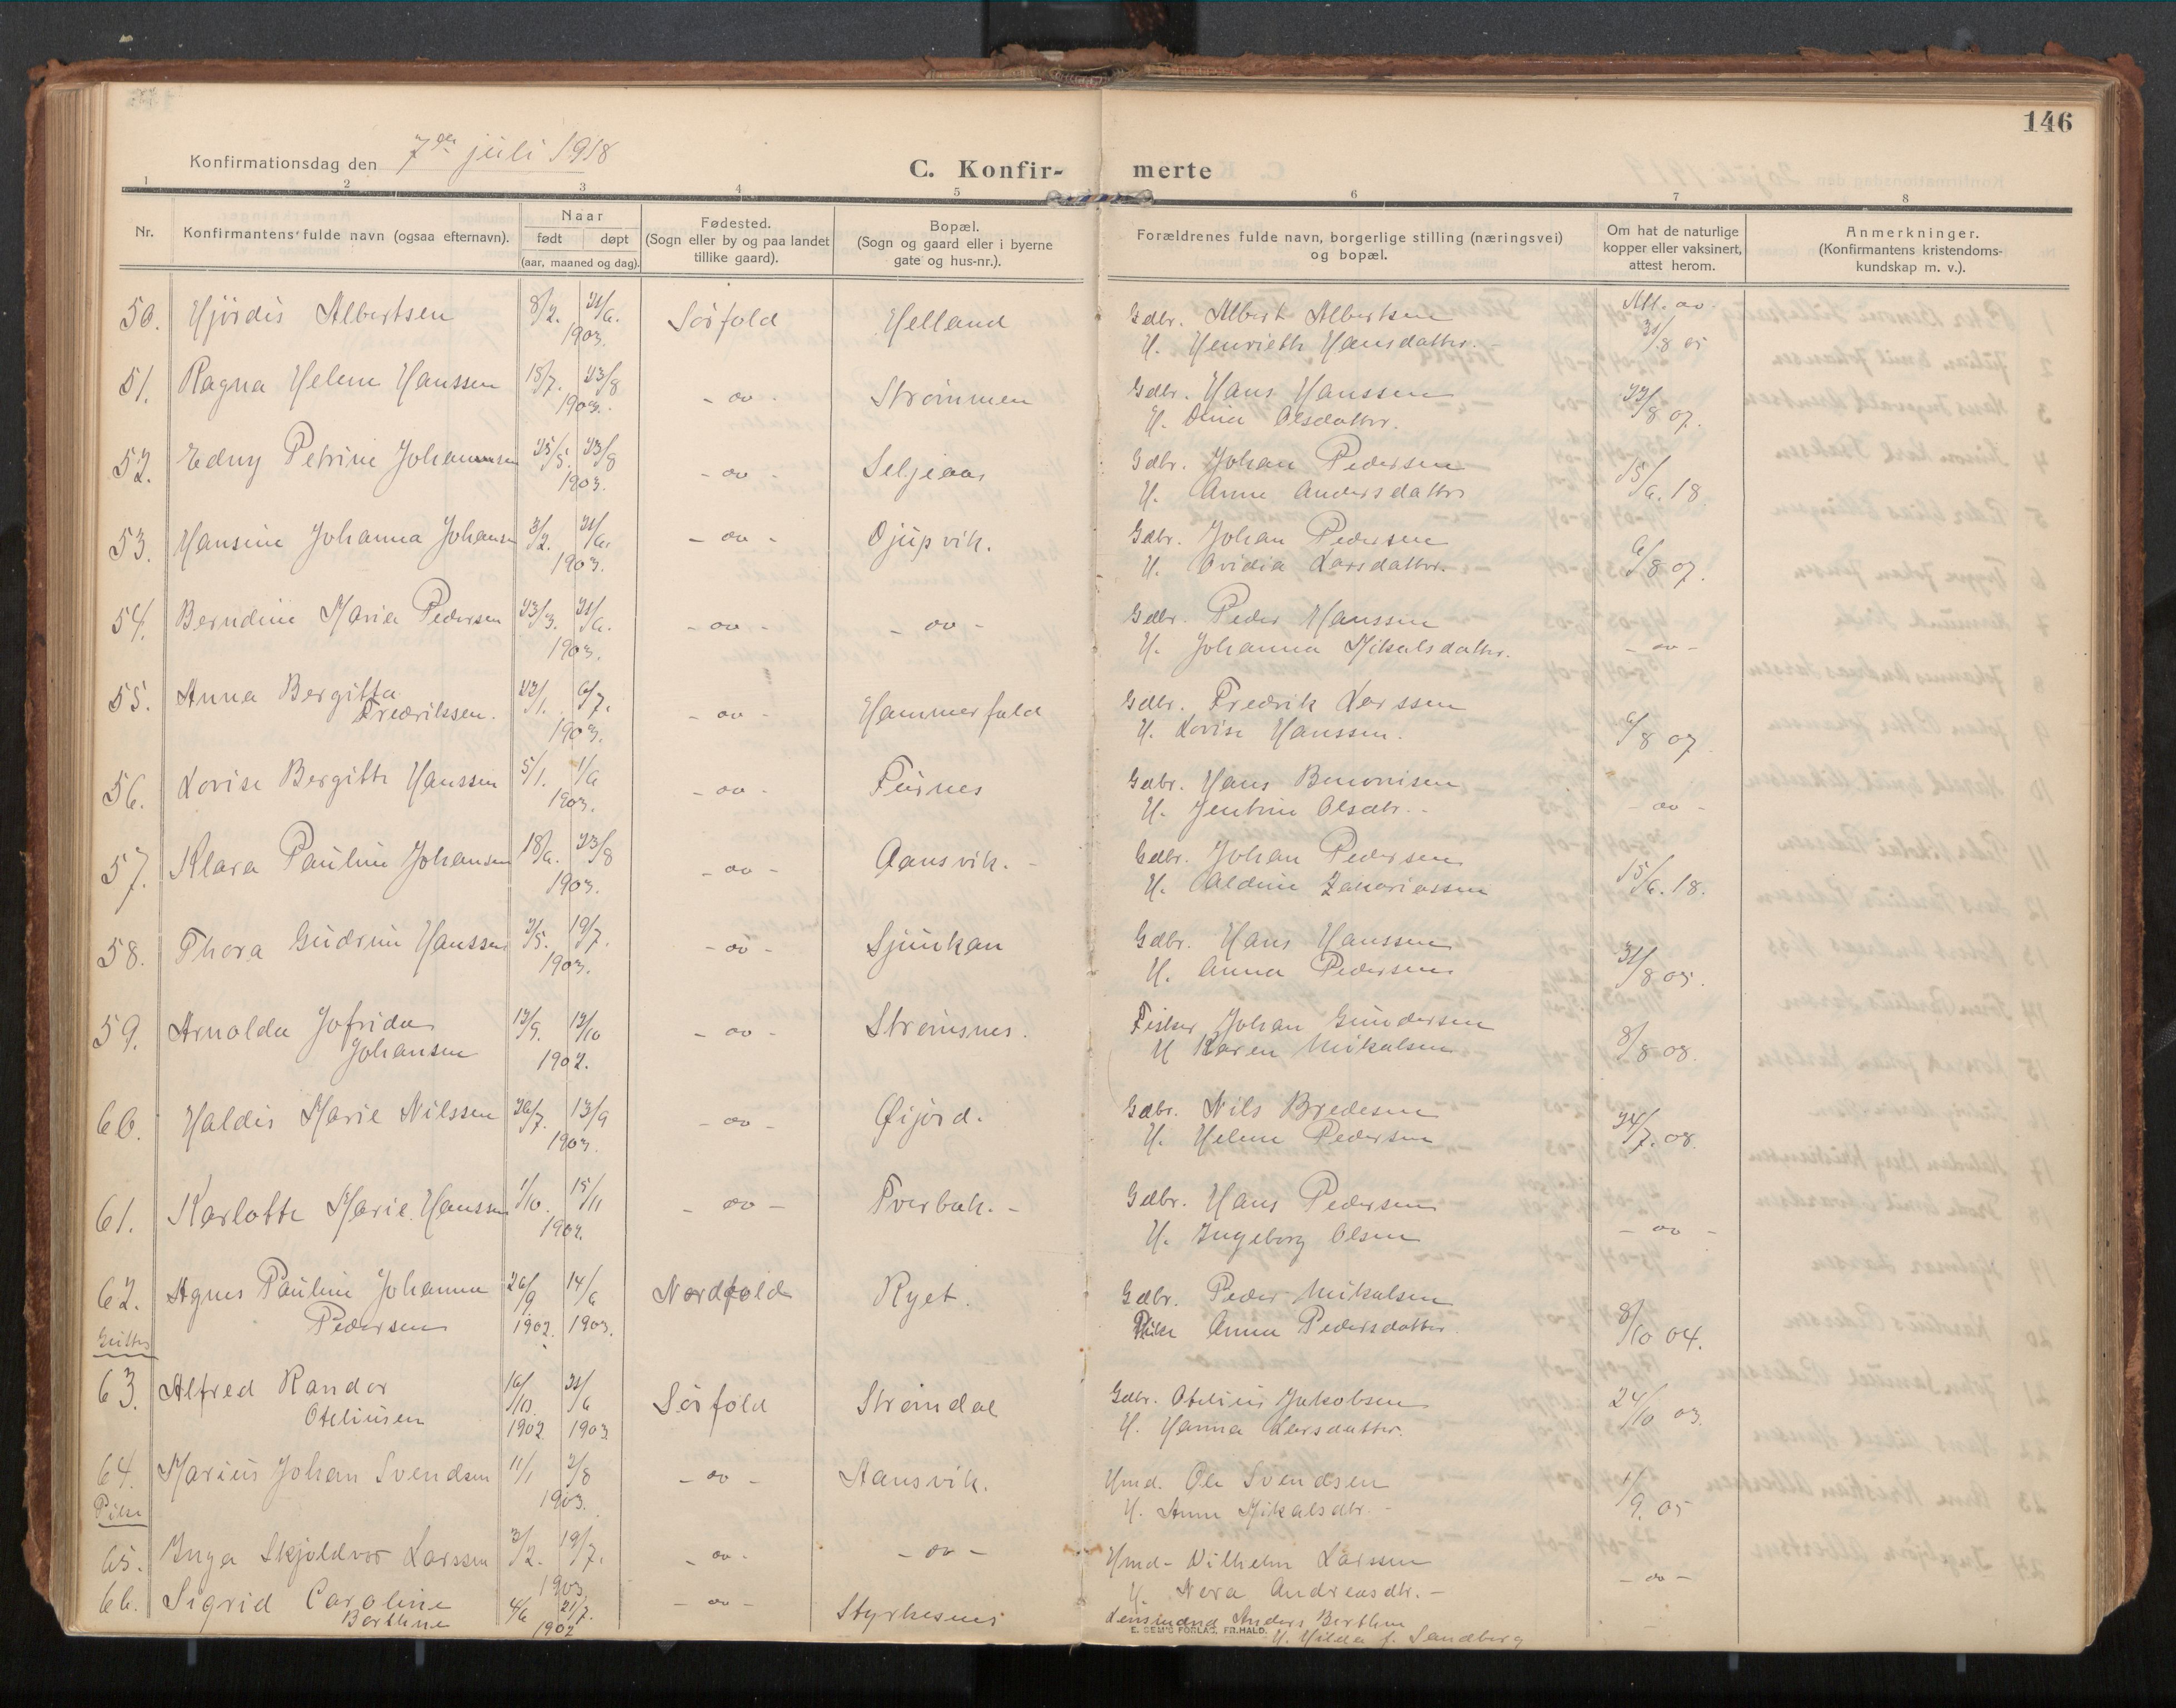 146
Konfirmationsdag den 7de juli 1918
C. Konfir- merte
1 2 3 4 5 6 7 8
Nr.
Konfirmantens fulde navn (ogsaa efternavn).
Naar
født døpt
(aar, maaned og dag).
Fødested.
(Sogn eller by og paa landet
tillike gaard).
Bopæl.
(Sogn og gaard eller i byerne
gate og hus-nr.).
Forældrenes fulde navn, borgerlige stilling (næringsvei)
og bopæl.
Om hat de naturlige
kopper eller vaksinert,
attest herom.
Anmerkninger.
(Konfirmantens kristendoms-
kundskap m. v.).
50. Hjördis Albertsen 8/2. 21/6. Sörfold Helland Gdbr. Albert Albertsen Att. av.
1903. H. Henriette Hansdatter. 31/8 05
51. Ragna Helene Hanssen 18/7. 23/8 - ov - Strömmen Gdbr. Hans Hanssen 23/8 07.
1903. H. Olsdatter.
52. Edny Petrine Johannsen 25/5. 23/8 - ov - Seljeaas Gdbr. Johan Pedersen 15/6. 18
1903. H. Anne Andersdatter
53. Hansine Johanna Johansen 3/2. 21/6. - ov - Djupvik. Gdbr. Johan Pedersen 6/8 07.
1903. H. Ovidia Larsdatter.
54. Berndine Maria Pedersen 23/3. 21/6. - ov - - ov - Gdbr. Peder Hanssen - ov -
1903. H. Johanna Mikalsdatter.
55. Anna Bergitta 23/1. 6/7. - ov - Hammerfald Gdbr. Fredrik Larssen 6/8 07.
Fredriksen. 1903. H. Lovise Hanssen.
56. Lovise Bergitte Hanssen 5/1. 1/6 - ov - Furnes Gdbr. Hans Benonisen - ov -
1903. H. Jentine Olsdtr.
57. Klara Pauline Johansen 18/6. 23/8 - ov - Aansvik. Gdbr. Johan Pedersen 15/6. 18.
1903. H. Aldine Zakariassen
58. Thora Gudrun Hanssen 3/5. 19/7. - ov - Sjunkan Gdbr. Hans Hanssen 31/8 05.
1903. H. Anna Pedersen
59. Arnolda Jofrida 13/9. 12/10 - ov - Strömsnes. Fisker Johan Gundersen 8/8 08.
Johansen 1902. H Karen Mikalsen
60. Haldis Marie Nilssen 26/7. 13/9 - ov - Öijord. Gdbr. Nils Bredesen 24/7. 08.
1903. H. Helene Pedersen
61. Karlotte Marie Hanssen 1/10. 15/11 - ov - Tverbak. - Gdbr. Hans Pedersen - ov -
1902. H. Ingeborg Olsen
62. Agnes Pauline Johanna 26/9. 14/6 Nordfold Ryet. Gdbr. Peder Mikalsen 8/10 04.
Pedersen 1902. 1903. Pike Anna Pedersdatter.
Gutter
63. Alfred Randor 16/10. 21/6 Sörfold Strömdal Gdbr. Otelius Jakobsen 24/10 03.
Oteliusen 1902 1903 H. Hanna Larsdatter.
64. Marius Johan Svendsen 11/1 2/8 - ov - Aansvik. Hmd. Ole Svendsen 1/9. 05
1903. H. Anne Mikalsdtr. -
Piker
65. Inga Skjoldvor Larssen 3/2. 19/7. - ov - - ov - Hmd - Vilhelm Larssen - ov -
1903 H. Nera Andreasdtr. -
66. Sigrid Caroline 4/6 21/7. - ov - Styrkesnes Lensmand Anders Berthine
Berthine 1902 H. Hilda f. Sandberg
E. SEM'S FORLAG, FR.HALD.